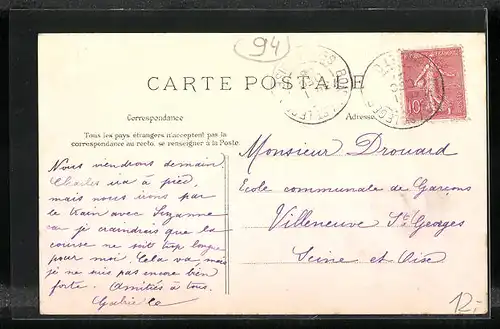 94
CARTE POSTALE
Correspondance
Adresse
Tous les pays étrangers n'acceptent pas la
correspondance au recto, se renseigner à la Poste.
Nous viendrons demain
Charles ira à pied,
mais nous irons par
le train avec Suzanne
car je craindrais que la
course ne soit trop longue
pour moi. Cela va mais
je ne suis pas encore bien
forte. Amitiés à tous.
Monsieur Drouard
Ecole communale de Garçons
Villeneuve St Georges
Seine et Oise
10
12,-